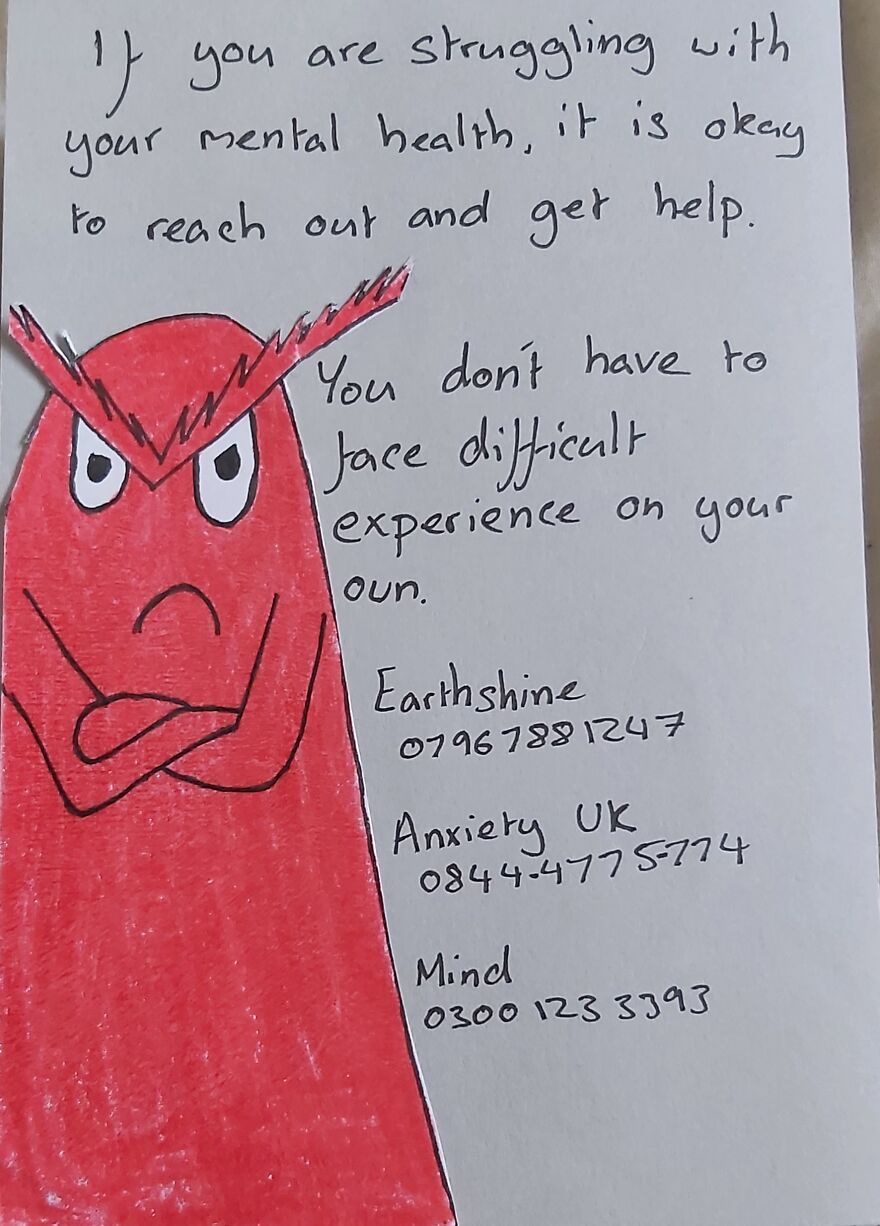 If you are struggling with
your mental health, it is okay
to reach out and get help.
You don't have to
face difficult
experience on your
own.
Earthshine
07967881247
Anxiety UK
0844-4775-774
Mind
0300 123 3393